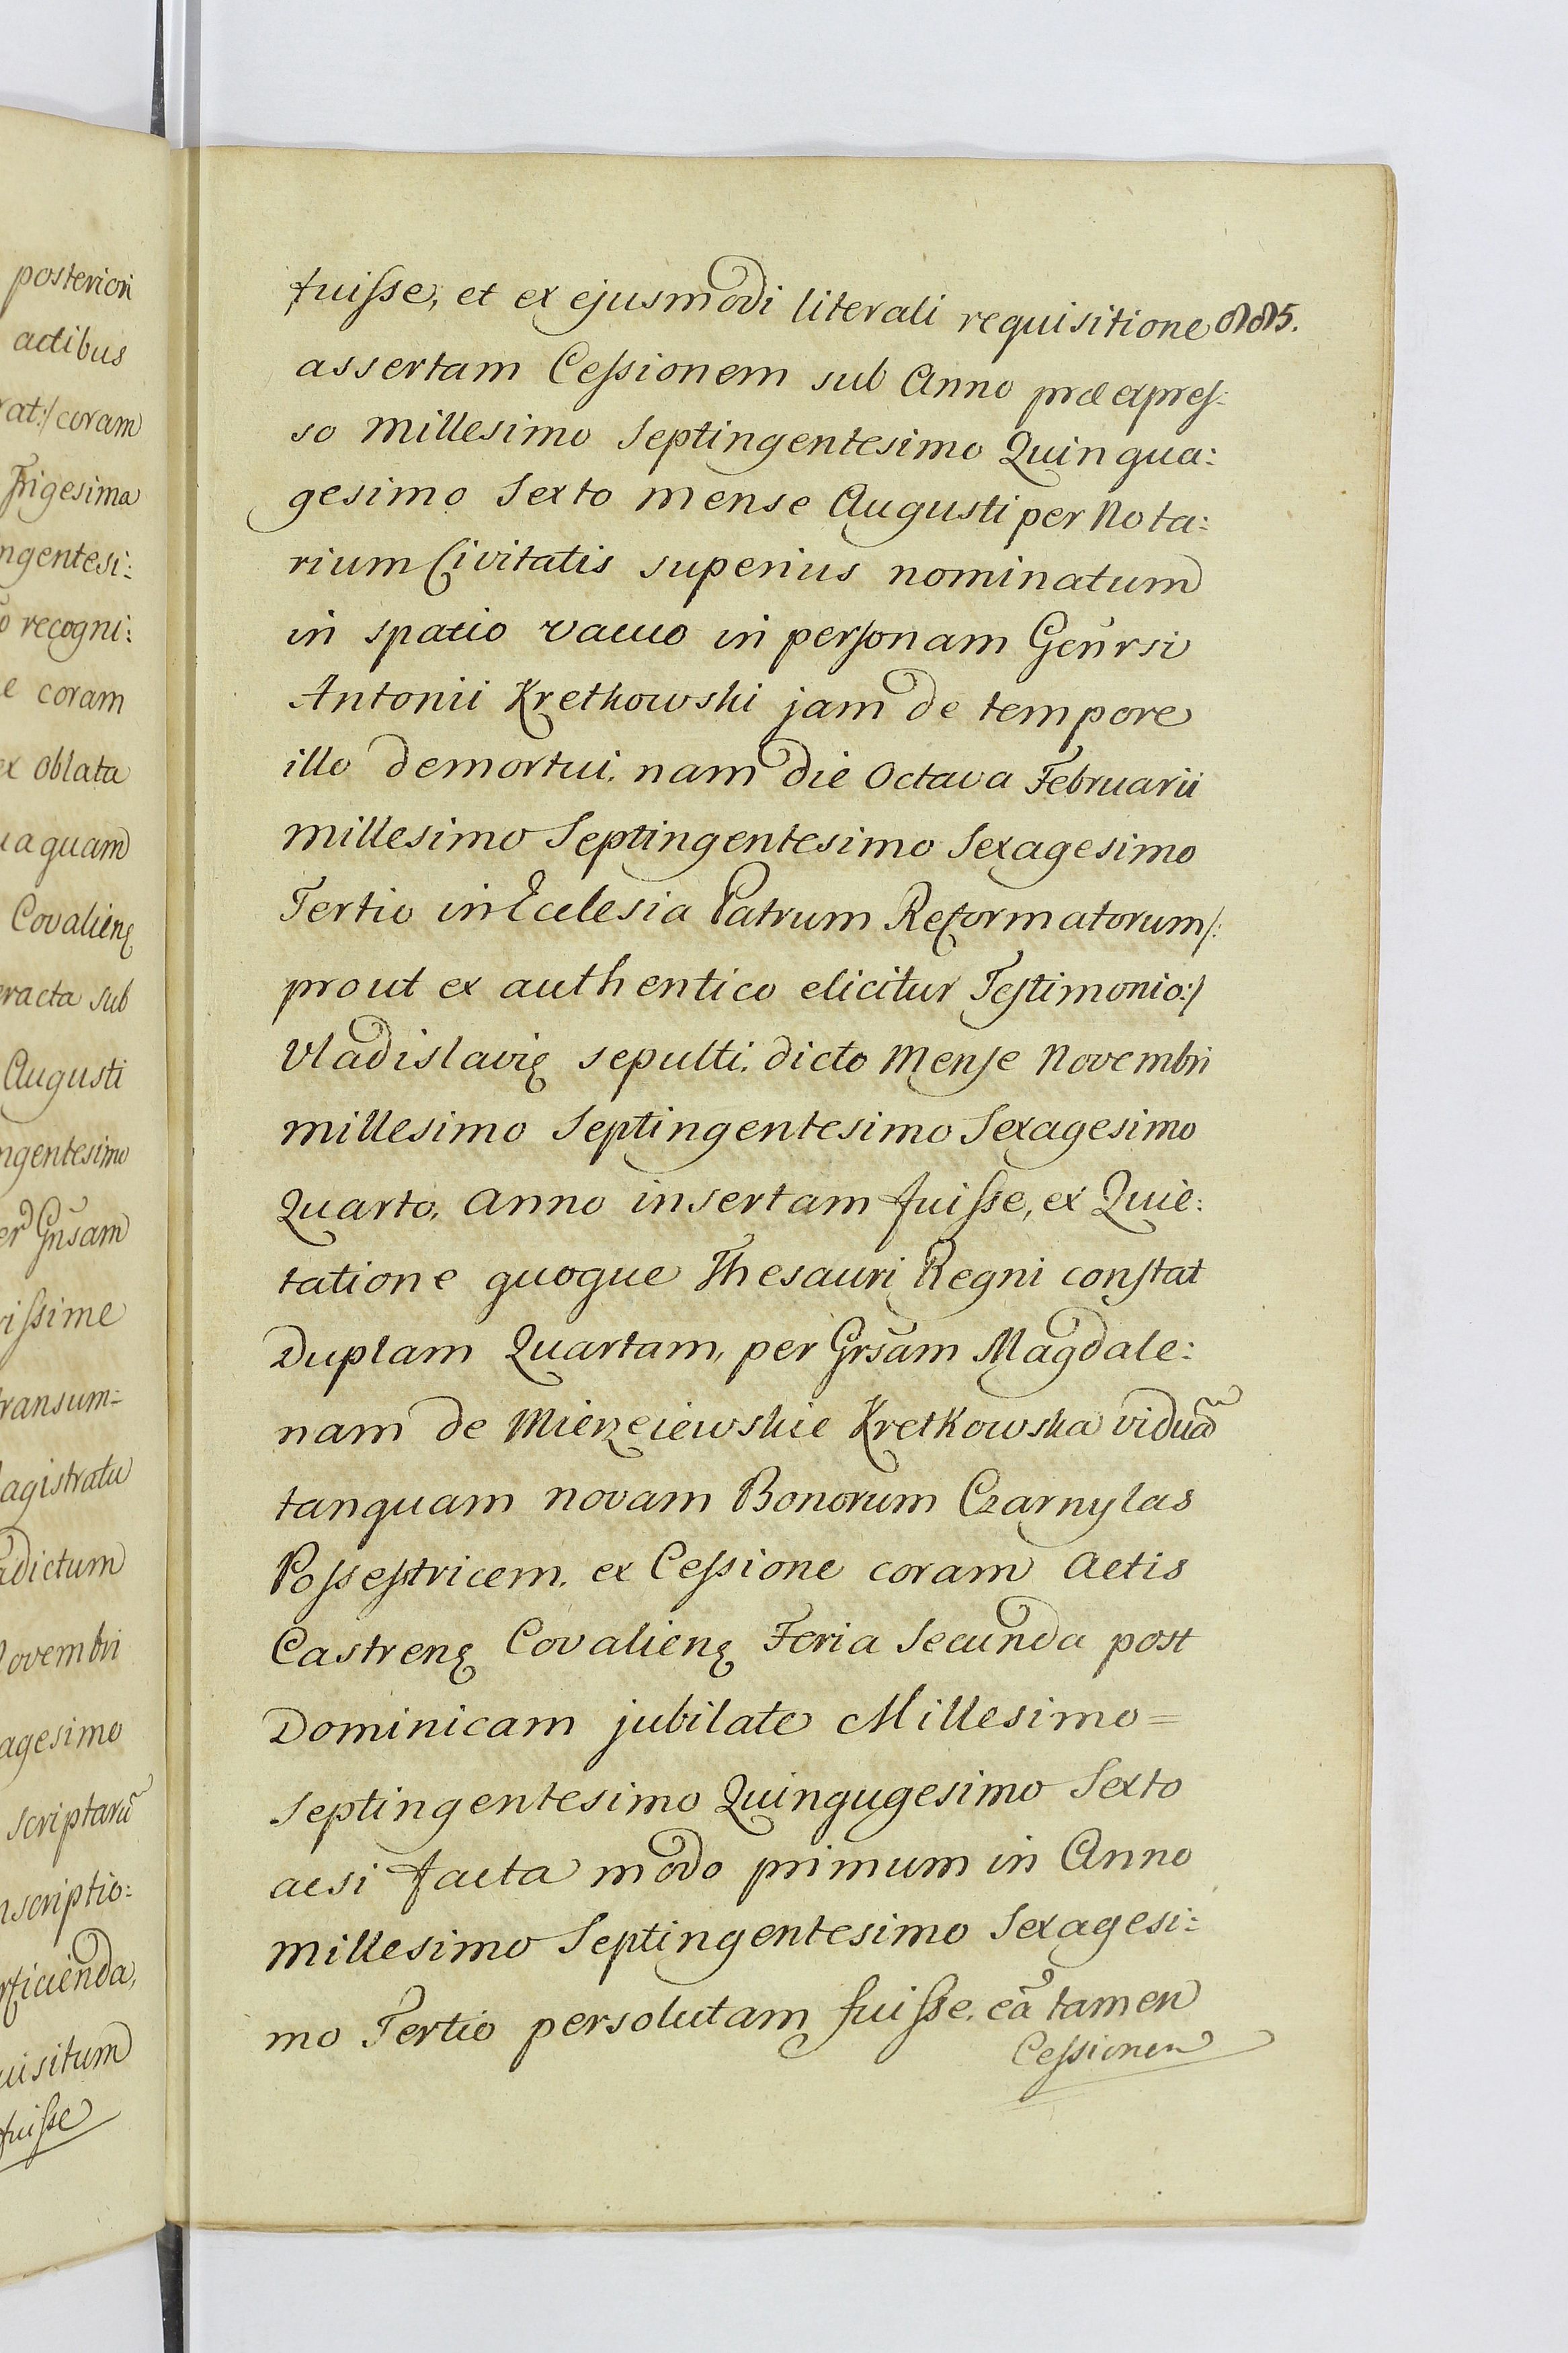 posteriori
actibus
rat:/ coram
Trigesima
ngentesi:
o recogni:
e coram
ex oblata
uaquam
Covalienẹ
eracta sub
Augusti
ngentesimo
Gnsam
rissime
transum=
agistratu
adictum
Novembri
agesimo
scriptarũ
nscriptio:
rficienda,
uisitum
fuisse
fuisse, et ex ejusmodi literali requisitione
assertam Cessionem sub Anno præexpres:
so Millesimo Septingentesimo Quinqua:
gesimo Sexto mense Augusti per Nota:
rium Civitatis superius nominatum
in spatio vacuo in personam Genrsi
Antonii Kretkowski jam de tempore
illo demortui, nam die Octava Februarii
millesimo Septingentesimo Sexagesimo
Tertio in Ecclesia Patrum Reformatorum /:
prout ex authentico elicitur Testimonio:/
Vladislaviẹ sepulti, dicto Mense Novembri
millesimo Septingentesimo Sexagesimo
Quarto, Anno insertam fuisse, ex Quie:
tatione quoque Thesauri Regni constat
Duplam Quartam, per Grsam Magdale:
nam de Mierzeiewskie Kretkowska viduã
tanquam novam Bonorum Czarnylas
Possestricem, ex Cessione coram Actis
Castrenẹ Covalienẹ Feria Secunda post
Dominicam jubilate Millesimo=
Septingentesimo Quinqugesimo Sexto
acsi facta modo primum in Anno
Millesimo Septingentesimo Sexagesi:
mo Tertio persolutam fuisse, eã tamen
Cessionem